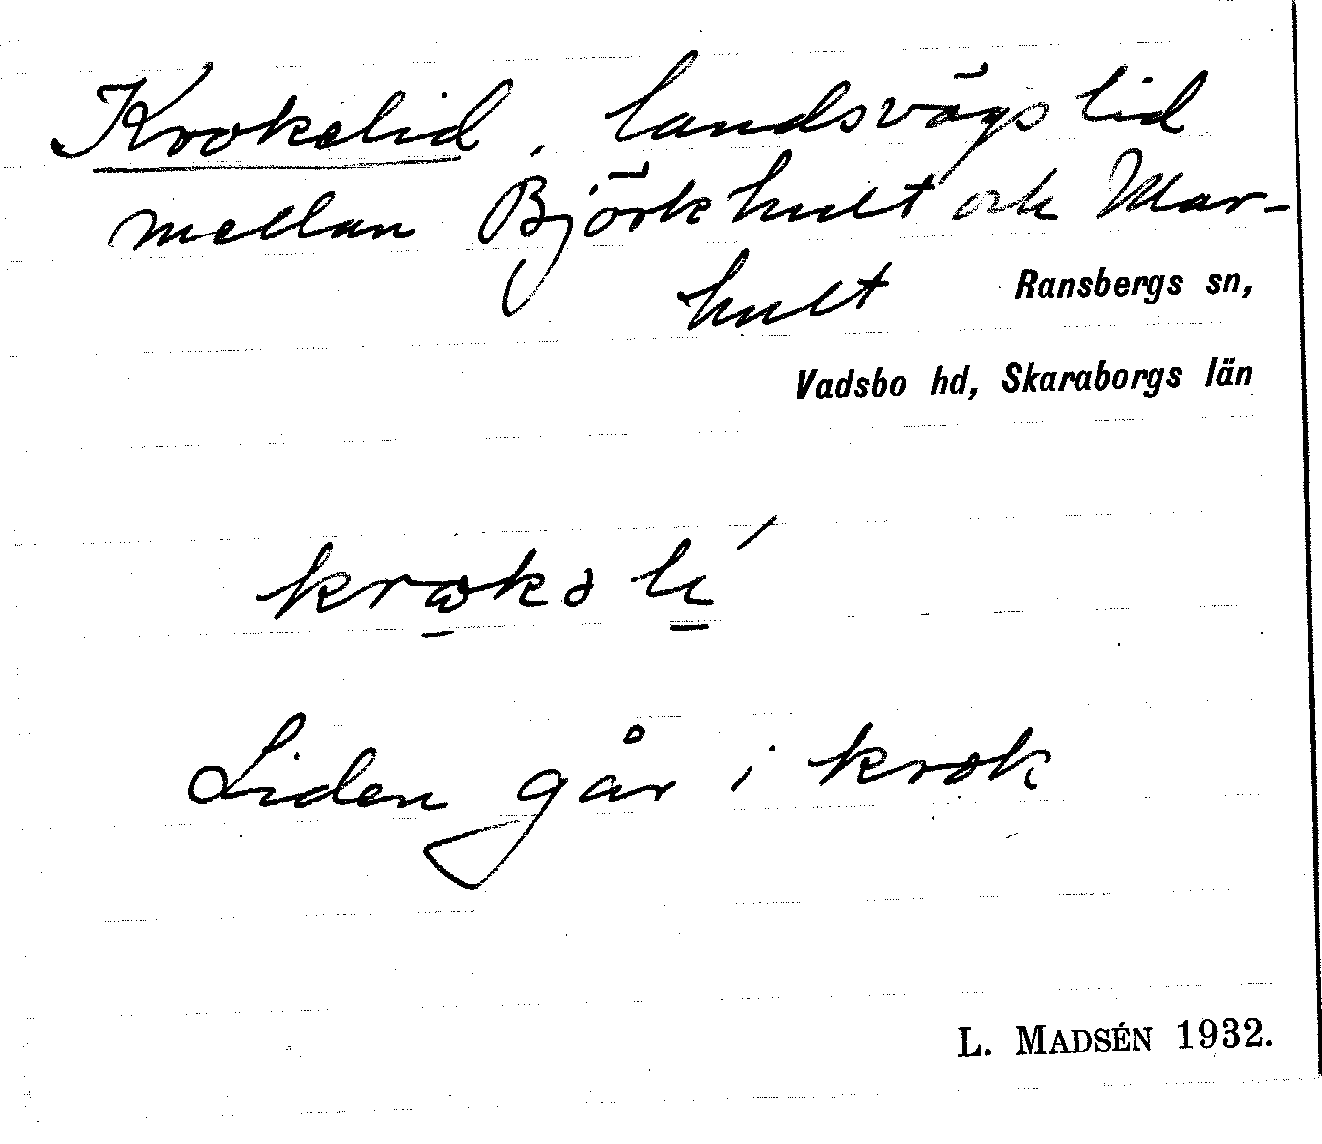 Krokelid, landsvägslid
mellan Björkhult och Mar-
hult
Ransbergs sn,
Vadsbo hd, Skaraborgs län
krokə li´
Liden går i krok
L. MADSÉN 1932.